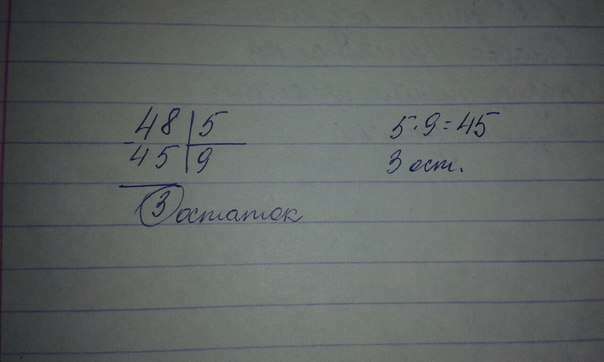 48 | 5
- 45 | 9
3 остаток
5·9=45
3 ост.